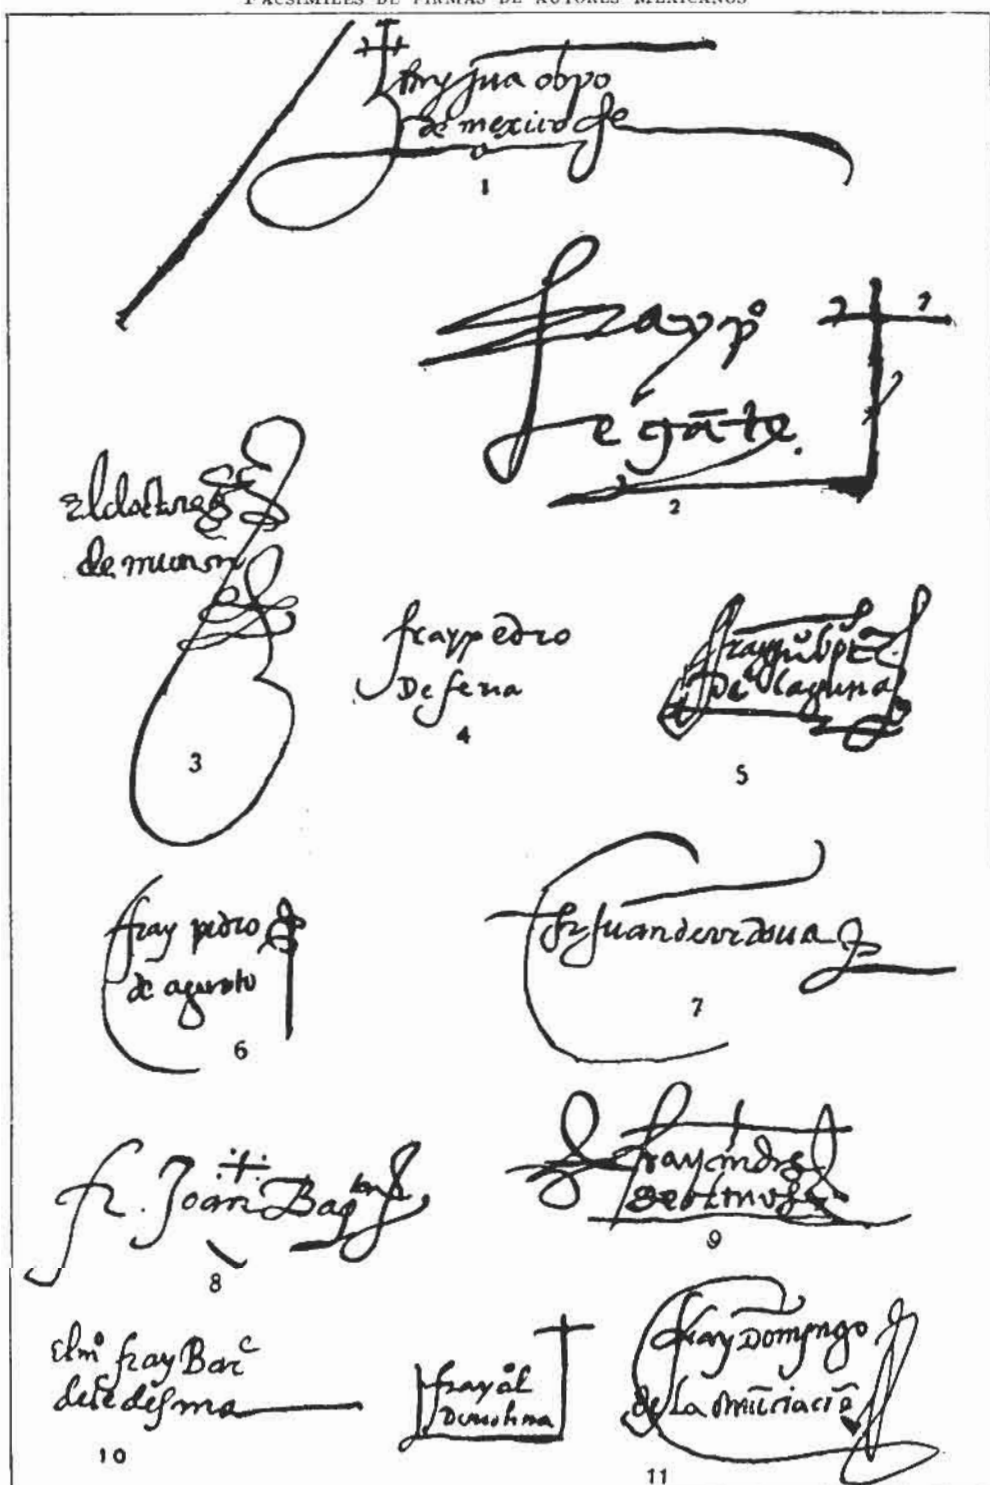 FACSIMILES DE FIRMAS DE AUTORES MEXICANOS
fray jua obpo
de mexico
1
fray po
de gāte.
2
El doctor
de munon
3
fray pedro
De feria
4
fray
De laguna
5
fray pedro
de agurto
6
fr Juan de
7
fr. Joan Bapta
8
fray Andres
de olmos
9
El mo fray Barc
de ledesma
10
fray al
De molina
fray Domyngo
de la
11